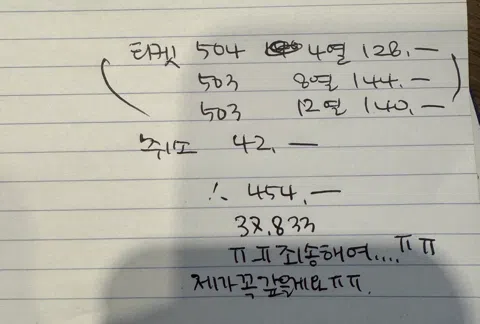 티켓 504 4열 128.—
503 8열 144.—
503 12열 140.—
취포 42.—
∴ 454.—
37.833
ㅠㅠ죄송해여....ㅠㅠ
제가꼭갚을게요ㅠㅠ.